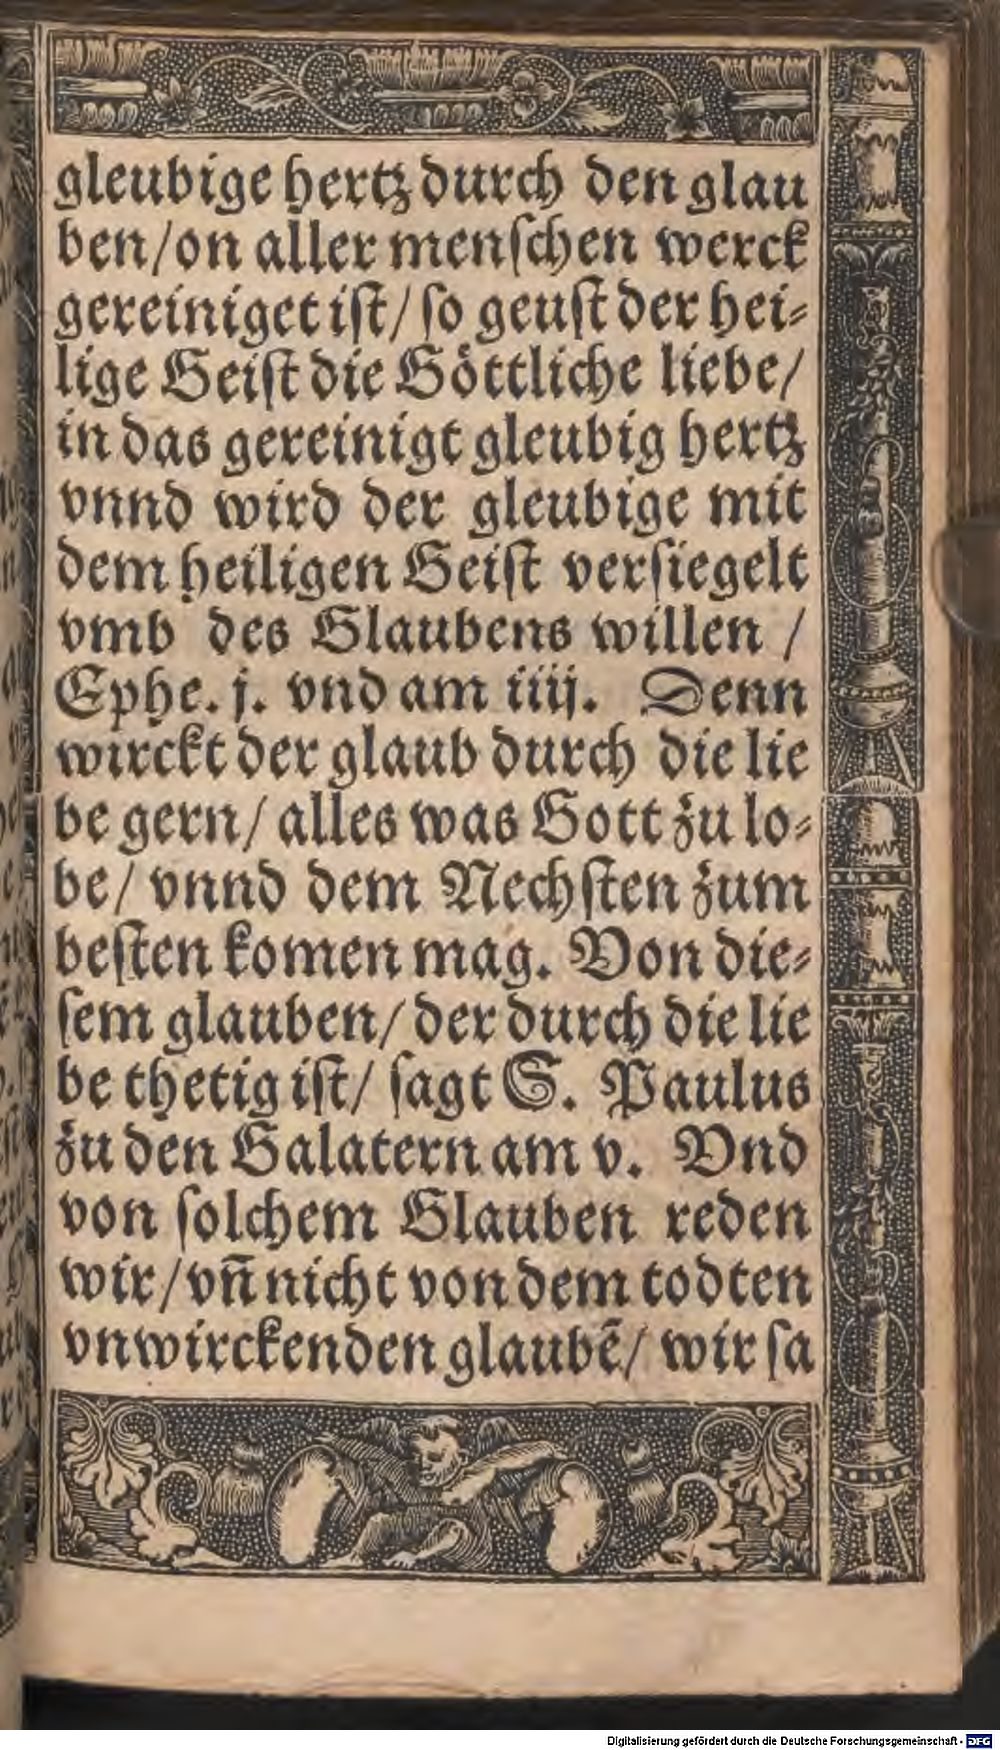 gleubige hertz durch den glau
ben/on aller menſchen werck
gereiniget iſt/ ſo geuſt der hei⸗
lige Geiſt die Göttliche liebe/
in das gereinigt gleubig hertz
vnnd wird der gleubige mit
dem heiligen Geiſt verſiegelt
vmb des Glaubens willen /
Ephe. j. vnd am iiij. Denn
wirckt der glaub durch die lie
be gern/ alles was Gott zu lo⸗
be/ vnnd dem Nechſten zum
beſten komen mag. Von die⸗
ſem glauben/ der durch die lie
be thetig iſt/ ſagt S. Paulus
zu den Galatern am v. Vnd
von ſolchem Glauben reden
wir/vn̄ nicht von dem todten
vnwirckenden glaubē/ wir ſa
Digitalisierung gefördert durch die Deutsche Forschungsgemeinschaft - DFG